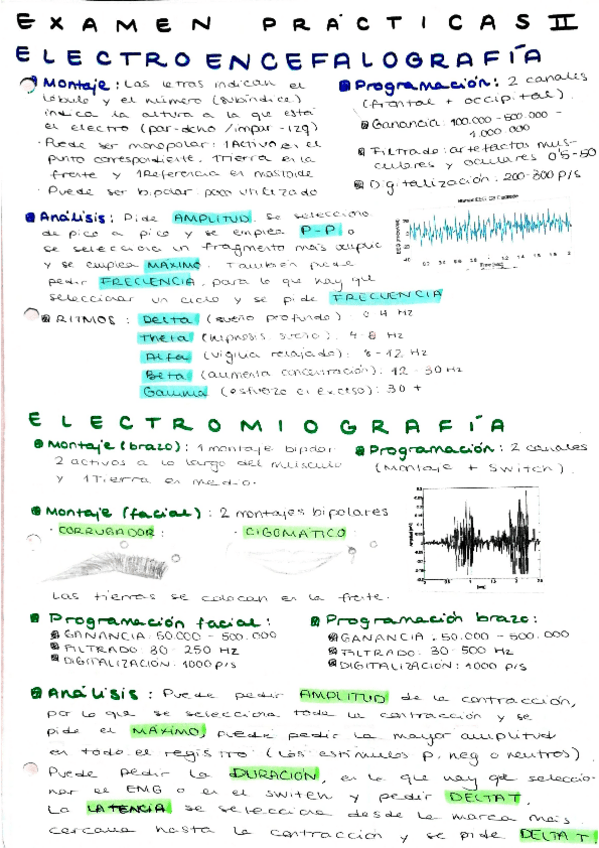 EXAMEN PRÁCTICAS II
ELECTROENCEFALOGRAFÍA
Montaje: Las letras indican el
lóbulo y el número (subíndice)
indica la altura a la que está
el electro (par-dcho /impar-izq)
· Puede ser monopolar: 1 Activo en el
punto correspondiente, 1 Tierra en la
frente y 1 Referencia en mastoide
· Puede ser bipolar: poco utilizado
Programación: 2 canales
(frontal + occipital).
Ganancia: 100.000 - 500.000 -
1.000.000
Filtrado: artefactos mus-
culares y oculares 0'5-50
Digitalización: 200-300 p/s
Análisis: Pide AMPLITUD. Se selecciona
de pico a pico y se emplea P-P o
se selecciona un fragmento más amplio
y se emplea MÁXIMO. También puede
pedir FRECUENCIA, para lo que hay que
seleccionar un ciclo y se pide FRECUENCIA
RITMOS: Delta (sueño profundo): 0-4 Hz
Theta (hipnosis, sueño): 4-8 Hz
Alfa (vigilia relajado): 8-12 Hz
Beta (aumenta concentración): 12-30 Hz
Gamma (esfuerzo en exceso): 30 +
ELECTROMIOGRAFÍA
Montaje (brazo): 1 montaje bipolar
2 activos a lo largo del músculo
y 1 Tierra en medio.
Programación: 2 canales
(Montaje + Switch).
Montaje (facial): 2 montajes bipolares
· CORRUGADOR:
· CIGOMÁTICO:
Las tierras se colocan en la frente.
Programación facial:
GANANCIA: 50.000 - 500.000
FILTRADO: 30-250 HZ
DIGITALIZACIÓN: 1000 p/s
Programación brazo:
GANANCIA: 50.000 - 500.000
FILTRADO: 30-500 HZ
DIGITALIZACIÓN: 1000 p/s
Análisis: Puede pedir AMPLITUD de la contracción,
por lo que se selecciona toda la contracción y se
pide el MÁXIMO, puede pedir la mayor amplitud
en todo el registro (los estímulos p, neg o neutros).
Puede pedir la DURACIÓN, en lo que hay que seleccio-
nar el EMG o en el switch y pedir DELTA T.
La LATENCIA se selecciona desde la marca más
cercana hasta la contracción y se pide DELTA T.